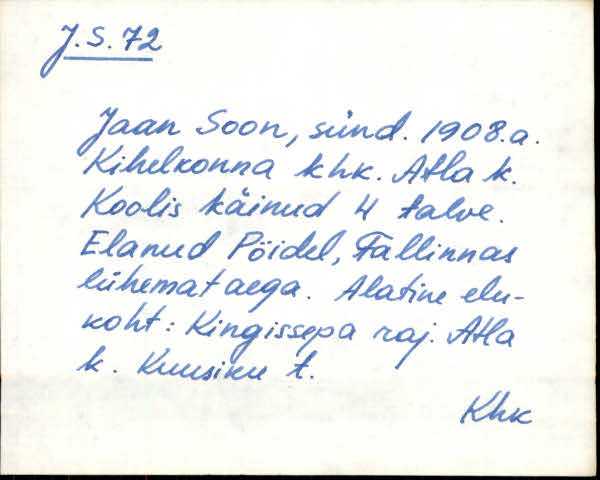 J.S. 72
Jaan Soon, sünd. 1908.a.
Kihelkonna khk. Atla k.
Koolis käinud 4 talve.
Elanud Pöidel, Tallinnas
lühemat aega. Alatine elu-
koht: Kingissepa raj. Atla
k. Kuusiku t.
Khk